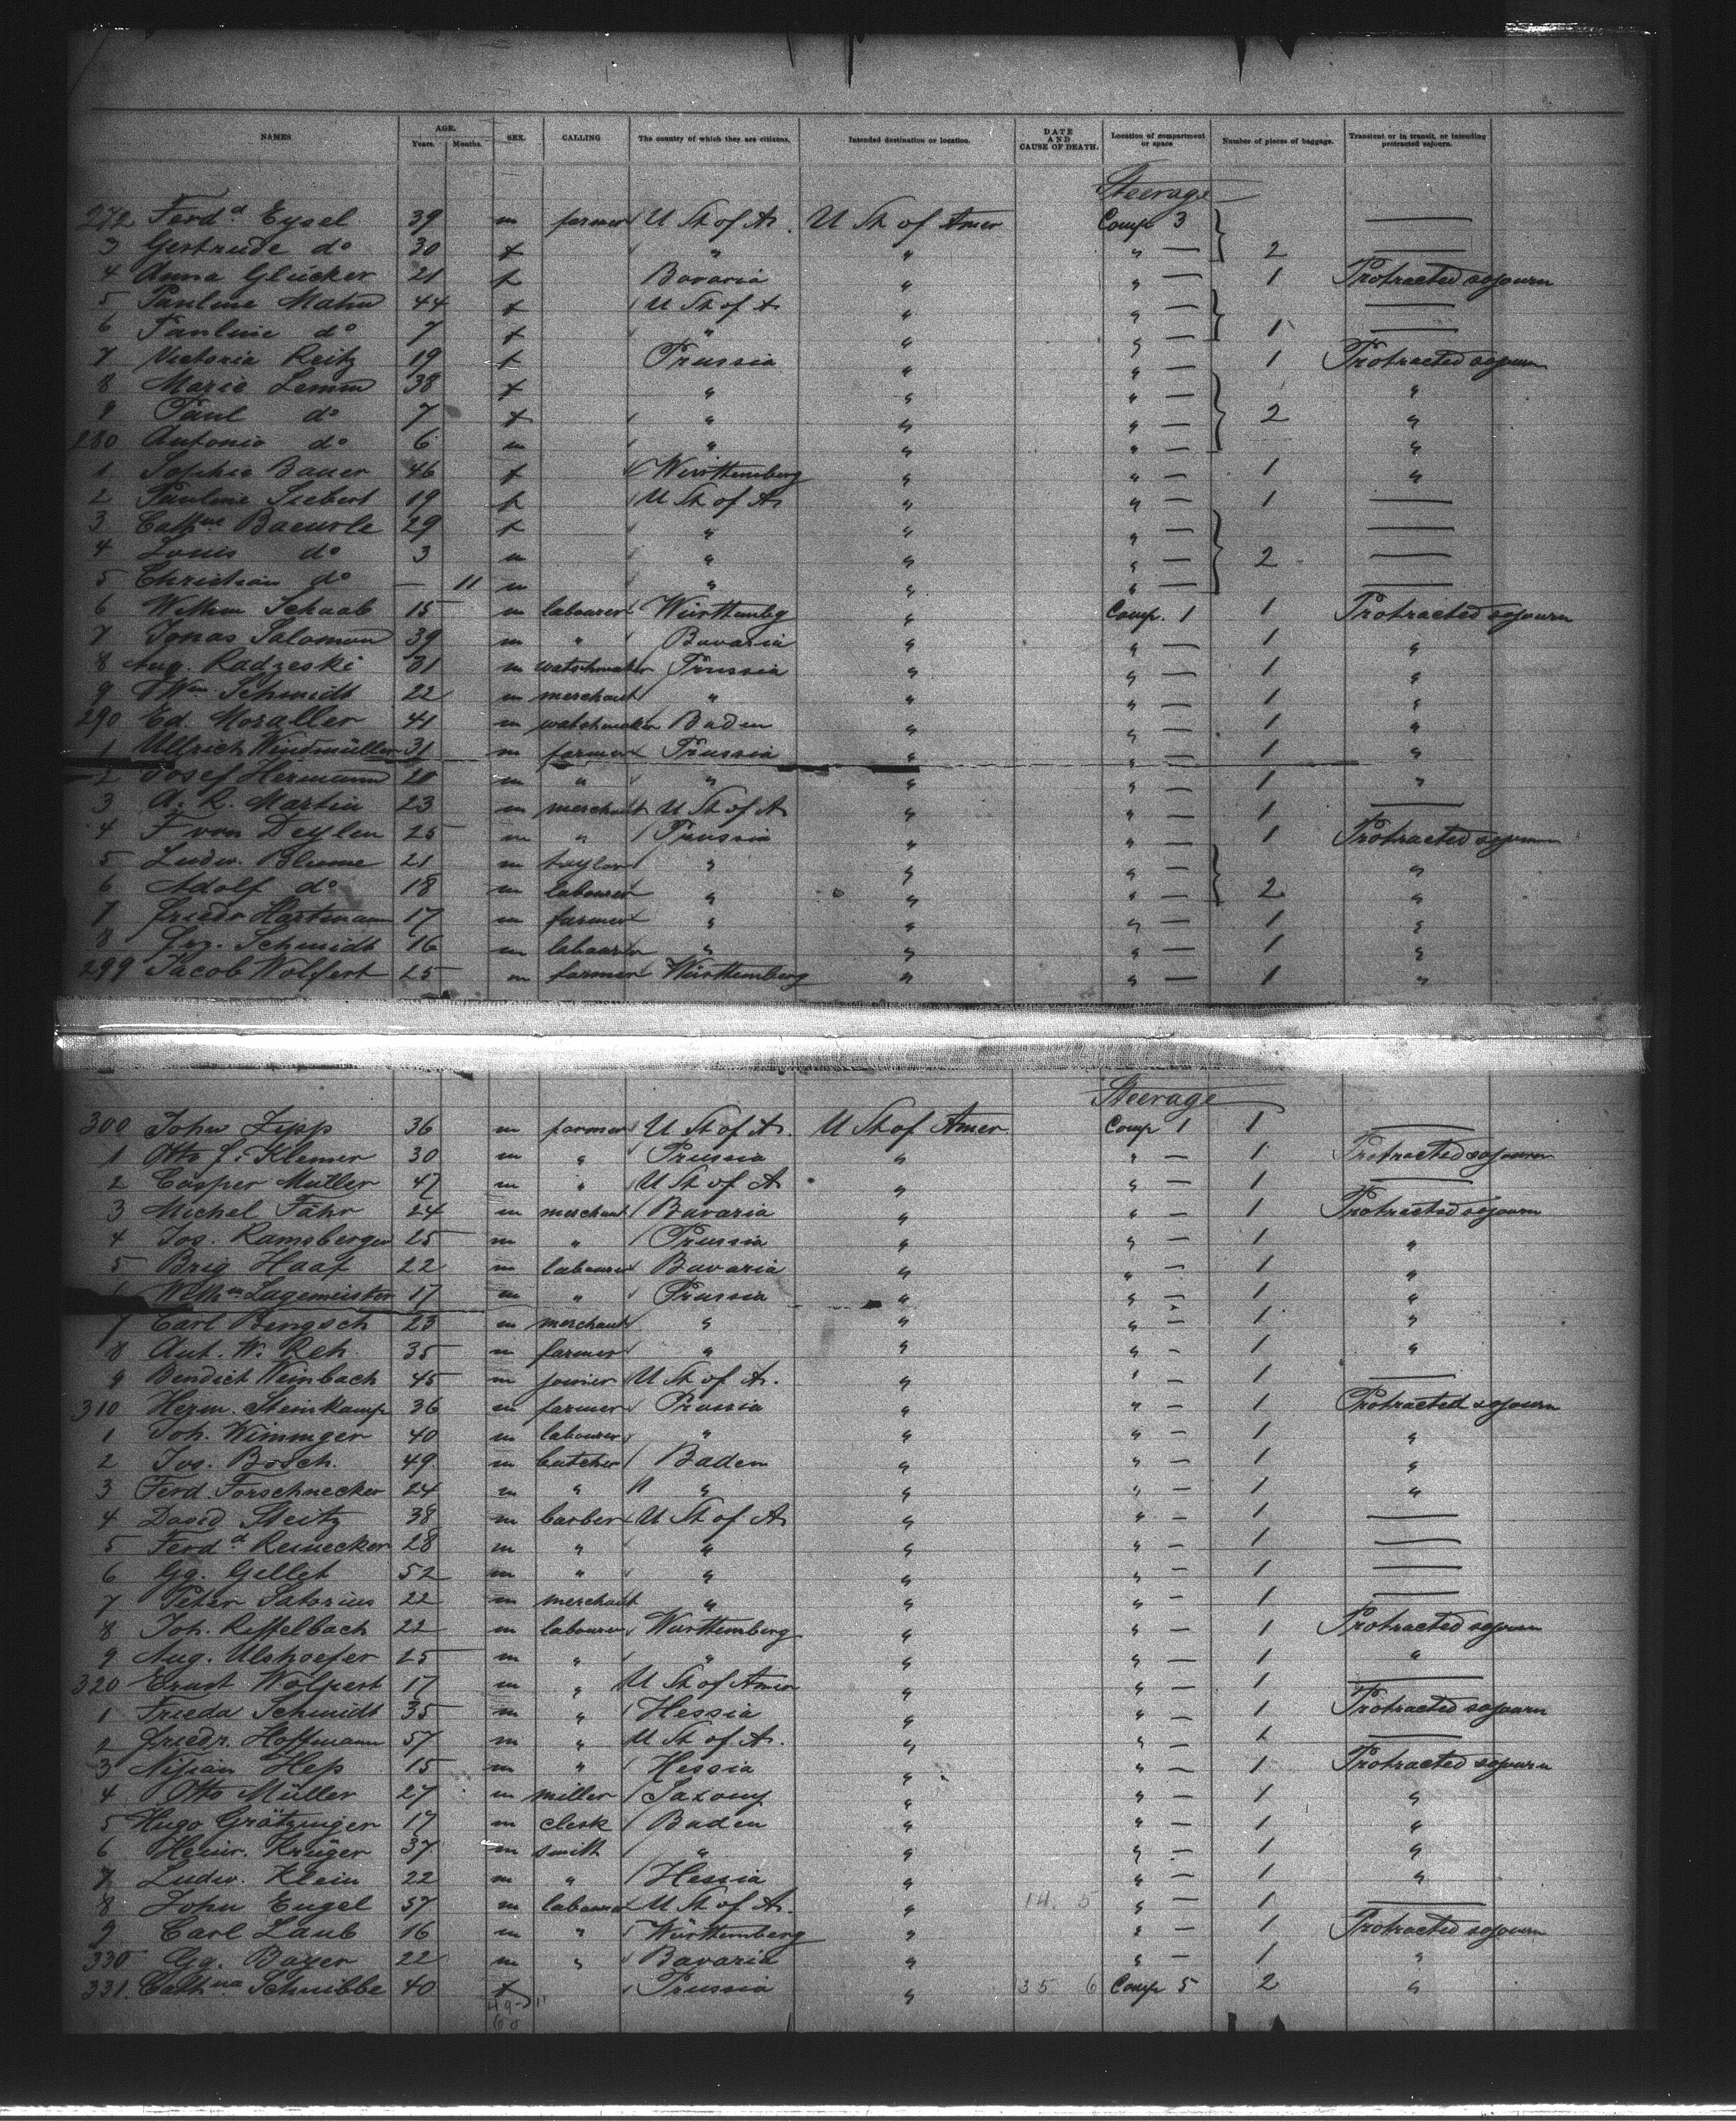 NAMES AGE. Years. Months. SEX. CALLING The country of which they are citizens. Intended destination or location. DATE AND CAUSE OF DEATH. Location of compartment or space Number of pieces of baggage. Transient or in transit, or intending protracted sojourn.
Steerage
272 Ferd d Eysel 39 m farmer U St of A. U St of Amer Comp 3 —
3 Gertrude do 30 f " " " — 2 —
4 Anna Glücker 21 f Bavaria " " — 1 Protracted sojourn
5 Pauline Mahn 44 f U St of A " " — —
6 Pauline do 7 f " " " — 1 —
7 Victoria Reitz 19 f Prussia " " — 1 Protracted sojourn
8 Marie Lemm 38 f " " " — "
9 Paul do 7 f " " " — 2 "
280 Antonia do 6 m " " " — "
1 Sophie Bauer 46 f Württemberg " " — 1 "
2 Pauline Siebert 19 f U St of A " " — 1 —
3 Cathne Baeurle 29 f " " " — —
4 Louis do 3 m " " " — 2 —
5 Christian do — 11 m " " " — —
6 Wilhm Schaab 15 m labourer Württembg " Comp. 1 1 Protracted sojourn
7 Jonas Salomon 39 m " Bavaria " " — 1 "
8 Aug. Radzeski 31 m watchmaker Prussia " " — 1 "
9 Wm Schmidt 22 m merchant " " " — 1 "
290 Ed. Moraller 41 m watchmaker Baden " " — 1 "
1 Ullrich Windmüller 31 m farmer Prussia " " — 1 "
2 Josef Hermann 20 m " " " " — 1 "
3 A. R. Martin 23 m merchant U St of A " " — 1 —
4 F von Deylen 25 m " Prussia " " — 1 Protracted sojourn
5 Ludw. Blume 21 m taylor " " " — "
6 Adolf do 18 m labourer " " " — 2 "
7 Friedr Hartmann 17 m farmer " " " — 1 "
8 Frz. Schmidt 16 m labourer " " " — 1 "
299 Jacob Wolfert 25 m farmer Württemberg " " — 1 "
Steerage
300 John Zipp 36 m farmer U St of A. U St of Amer. Comp 1 1 —
1 Otto F. Klemer 30 m " Prussia " " — 1 Protracted sojourn
2 Casper Müller 47 m " U St of A " " — 1 —
3 Michel Fähr 24 m merchant Bavaria " " — 1 Protracted sojourn
4 Jos. Ramsberger 25 m " Prussia " " — 1 "
5 Brig Haaf 22 m labourer Bavaria " " — 1 "
6 Wilhm Lagemeister 17 m " Prussia " " — 1 "
7 Carl Bengsch 23 m merchant " " " — 1 "
8 Ant. W. Reh. 35 m farmer " " " — 1 "
9 Bendict Weinbach 45 m joinier U St of A. " " — 1 —
310 Herm. Steinkamp 36 m farmer Prussia " " — 1 Protracted sojourn
1 Joh. Wimmger 40 m labourer " " " — 1 "
2 Jos. Bosch. 49 m butcher Baden " " — 1 "
3 Ferd. Forschnecker 24 m " " " " — 1 "
4 David Steitz 38 m barber U St of A " " — 1 —
5 Ferd d Reinecker 28 m " " " " — 1 —
6 Gg. Gellet 52 m " " " " — 1 —
7 Peter Satorius 22 m merchant " " " — 1 —
8 Joh. Riffelbach 22 m labourer Württemberg " " — 1 Protracted sojourn
9 Aug. Ulshoefer 25 m " " " " — 1 "
320 Ernst Wolpert 17 m " U St of Amer " " — 1 —
1 Frieda Schmidt 35 m " Hessia " " — 1 Protracted sojourn
2 Friedr. Hoffmann 57 m " U St of A. " " — 1 —
3 Hep 15 m " Hessia " " — 1 Protracted sojourn
4 Otto Müller 27 m miller Saxony " " — 1 "
5 Hugo Grötzinger 17 m clerk Baden " " — 1 "
6 Heinr. Krüger 37 m smith " " " — 1 "
7 Ludw. Klein 22 m " Hessia " " — 1 "
8 John Engel 57 m labourer U St of A. " 14. 5 " — 1 —
9 Carl Laub 16 m " Württemberg " " — 1 Protracted sojourn
330 Gg. Bayer 22 m " Bavaria " " — 1 "
331. Cathna Schnibbe 40 f Prussia " 35 6 Comp 5 2 "
49- 11
60